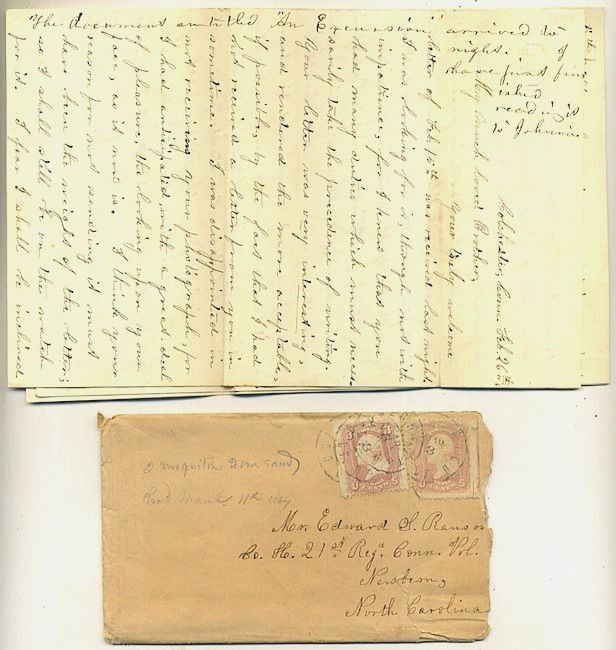 The document entitled "An Excursion" arrived to
night. I
have just fin
ished
reading it
to Johnnie
Colchester, Conn. Feb. 26th,
My much loved Brother,
Your truly welcome
letter of Feb. 15th was received last night.
I was looking for it, though not with
impatience, for I knew that you
had many duties which must neces-
sarily take the precedence of writing.
Your letter was very interesting,
and rendered the more acceptable,
if possible, by the fact that I had
not received a letter from you in
sometime. I was disappointed in
not receiving your photograph, for
I had anticipated with a great deal
of pleasure, the looking upon your
face, as it now is. I think your
reason for not sending it must
have been the weight of the letter;
so I shall still be on the watch
for it. I fear I shall be inclined
2 mosquitoes some sand)
Recd March 11th 1864
Mr. Edward S. Ransom
Co. H. 21st Reg. Conn. Vol.
Newbern,
North Carolina